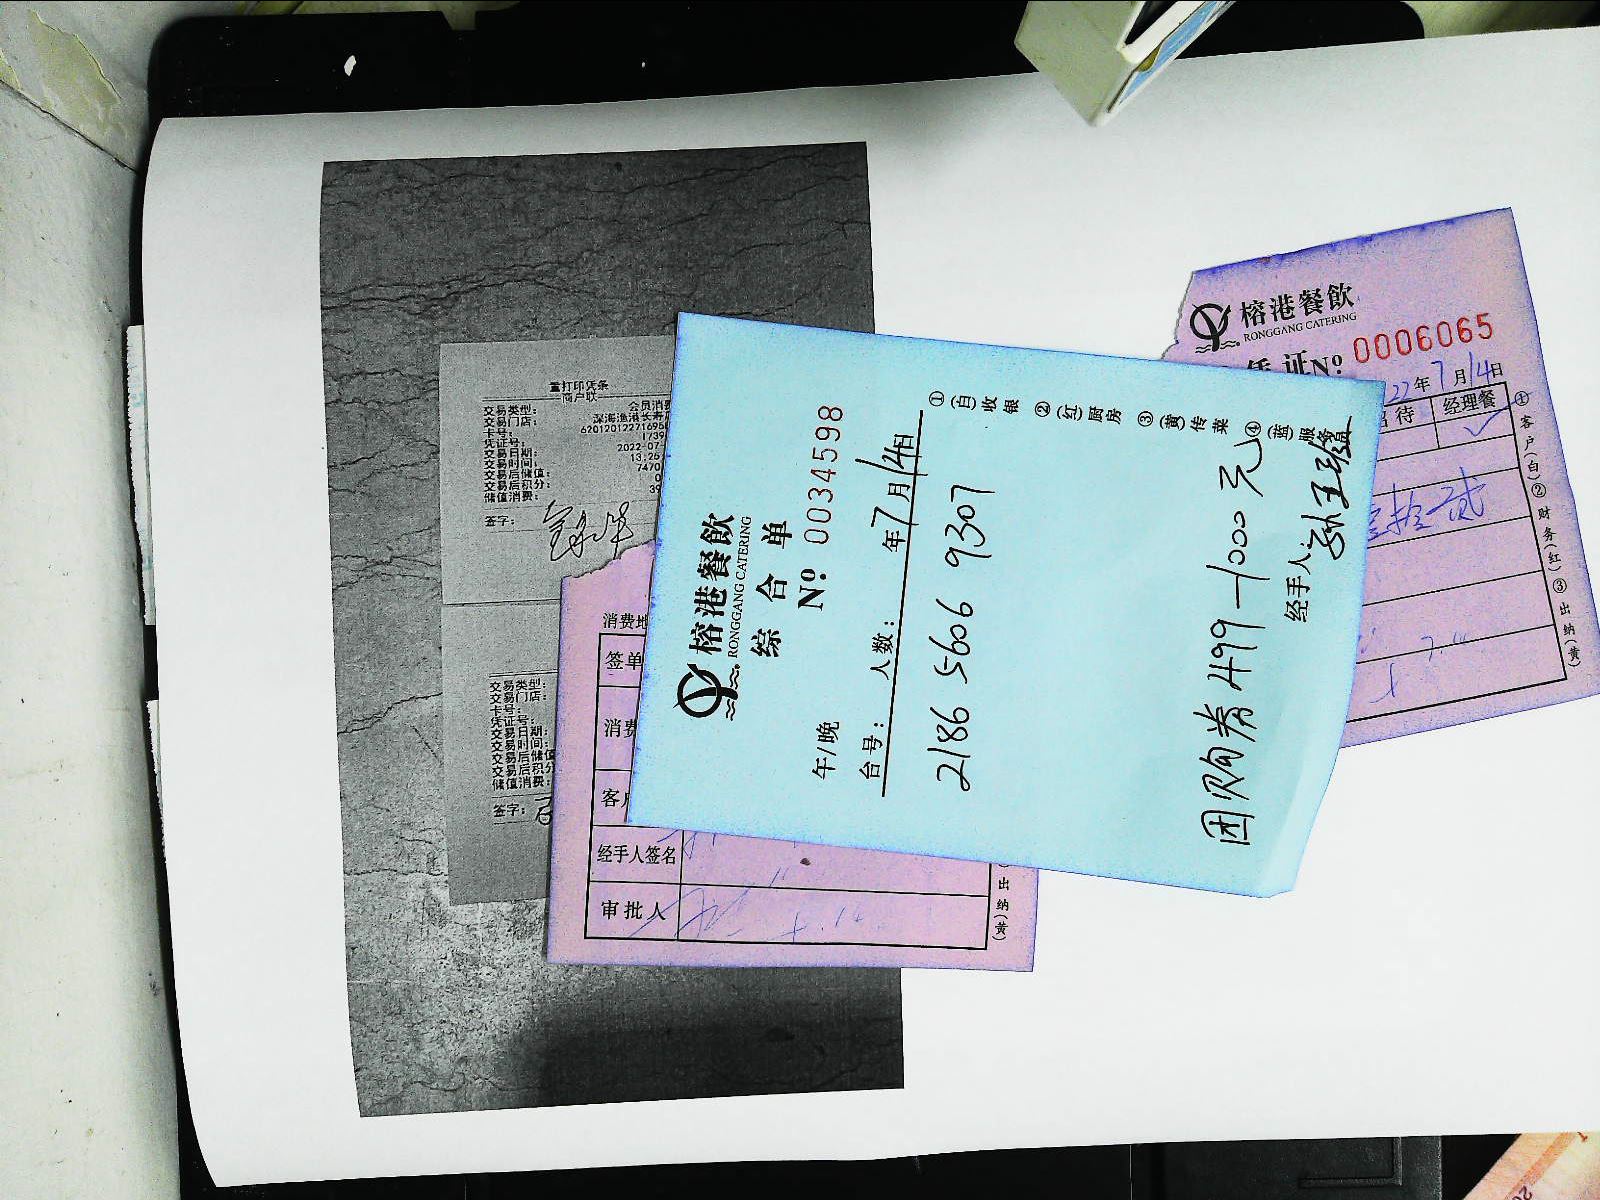 重打印凭条
商户联
交易类型: 会员消费
交易门店: 深海渔港长寿
卡号: 6201201227169
凭证号: 1739
交易日期: 2022-07-
交易时间: 13:26
交易后储值: 7470
交易后积分: 0
储值消费: 39
签字:
交易类型:
交易门店:
卡号:
凭证号:
交易日期:
交易时间:
交易后储值
交易后积分
储值消费:
签字:
消费地
签单
消费
客户
经手人签名
审批人
出纳(黄)
榕港餐飲
RONGGANG CATERING
综合单
№ 0034598
午/晚 年7月14日
台号: 人数:
2186 5606 9307
团购券499-1000元
经手人:
①(白)收银 ②(红)厨房 ③(黄)传菜 ④(蓝)服务员
榕港餐飲
RONGGANG CATERING
凭证№ 0006065
22年7月14日
待 经理餐
✓
拾贰
①客户(白)②财务(红)③出纳(黄)